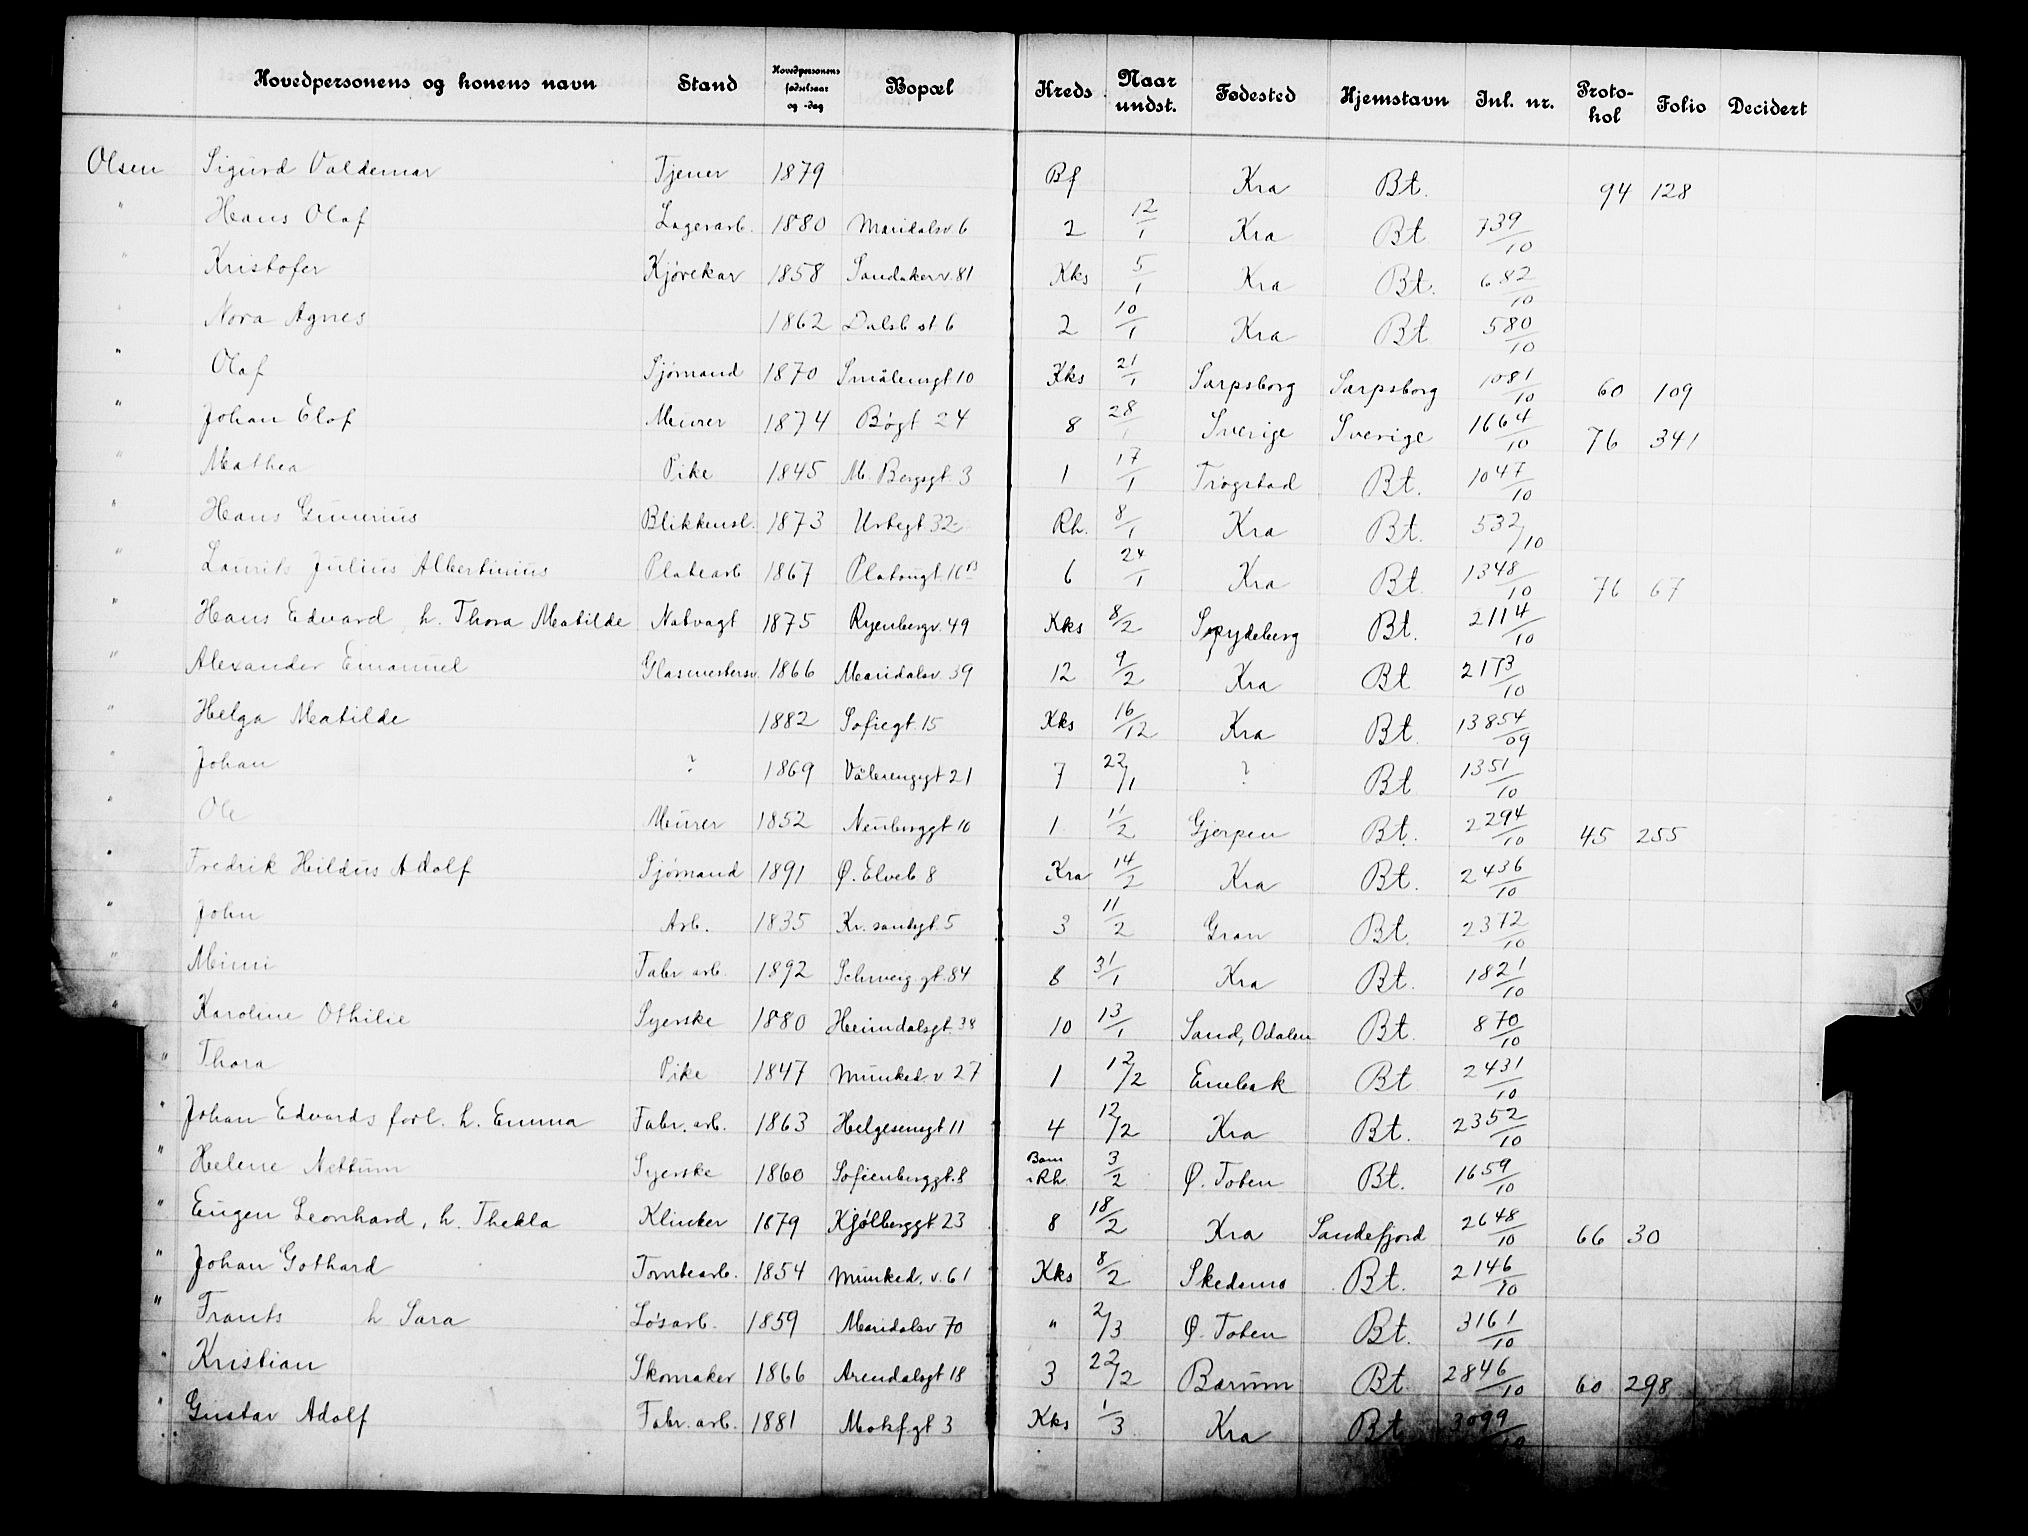 Hovedpersonens og konens navn Stand Hovedpersonens fødselsaar og -dag Bopæl Kreds Naar undst. Fødested Hjemstavn Inl. nr. Proto-kol Folio Decidert
Olsen Sigurd Valdemar Tjener 1879 Bf Kra Bt. 94 128
" Hans Olaf Lagerarb. 1880 Maridalsv 6 2 12/1 Kra Bt 739/10
" Kristofer Kjørekar 1858 Sandakerv. 81 Kks 5/1 Kra Bt. 682/10
" Nora Agnes 1862 Dalsb st 6 2 10/1 Kra Bt 580/10
" Olaf Sjømand 1870 Smålensgt 10 Kks 21/1 Sarpsborg Sarpsborg 1081/10 60 109
" Johan Elof Murer 1874 Bøgt 24 8 28/1 Sverige Sverige 1664/10 76 341
" Mathea Pike 1845 M. Bergsgt 3 1 17/1 Trøgstad Bt. 1047/10
" Hans Gunerius Blikkensl. 1873 Urtegt 32 Rh. 8/1 Kra Bt. 532/10
" Laurits Julius Albertinius Platearb 1867 Platougt. 16 B 6 24/1 Kra Bt. 1348/10 76 67
" Hans Edvard h. Thora Matilde Natvagt 1875 Ryenbergv. 49 Kks 8/2 Spydeberg Bt. 2114/10
" Alexander Emanuel Glasmestersv. 1866 Maridalsv 39 12 9/2 Kra Bt 2173/10
" Helga Matilde 1882 Sofiegt. 15 Kks 16/12 Kra Bt. 13854/09
" Johan ? 1869 Vålerenggt 21 7 22/1 ? Bt 1351/10
" Ole Murer 1852 Neuberggt 16 1 1/2 Gjerpen Bt. 2294/10 45 255
" Fredrik Hildus Adolf Sjømand 1891 Ø. Elveb 8 Kra 14/2 Kra Bt. 2436/10
" John Arb. 1835 Kr. sandsgt. 5 3 11/2 Gran Bt. 2372/10
" Mimi Fabr arb. 1892 Schweig.gt. 84 6 31/1 Kra Bt. 1821/10
" Karoline Othilie Syerske 1880 Heimdalsgt 38 10 13/1 Sand, Odalen Bt. 870/10
" Thora Pike 1847 Munked v 27 1 12/2 Enebak Bt 2431/10
" Johan Edvards forl. h. Emma Fabr. arb. 1863 Helgesensgt 11 4 12/2 Kra Bt. 2352/10
" Helene Nettum Syerske 1860 Sofienberggt. 8 Barn i Rh 3/2 Ø. Toten Bt. 1659/10
" Eugen Leonhard, h. Thekla Klinker 1879 Kjølberggt 23 8 18/2 Kra Sandefjord 2648/10 66 30
" Johan Gothard Tomtearb. 1854 Munked. v. 61 Kks 8/2 Skedsmo Bt. 2146/10
" Frants h Sara Løsarb. 1859 Maridalsv 70 " 2/3 Ø. Toten Bt. 3161/10
" Kristian Skomaker 1866 Arendalsgt 18 3 22/2 Bærum Bt. 2846/10 60 298
" Gustav Adolf Fabr. arb. 1881 Motzfgt 3 Kks 1/3 Kra Bt 3099/10